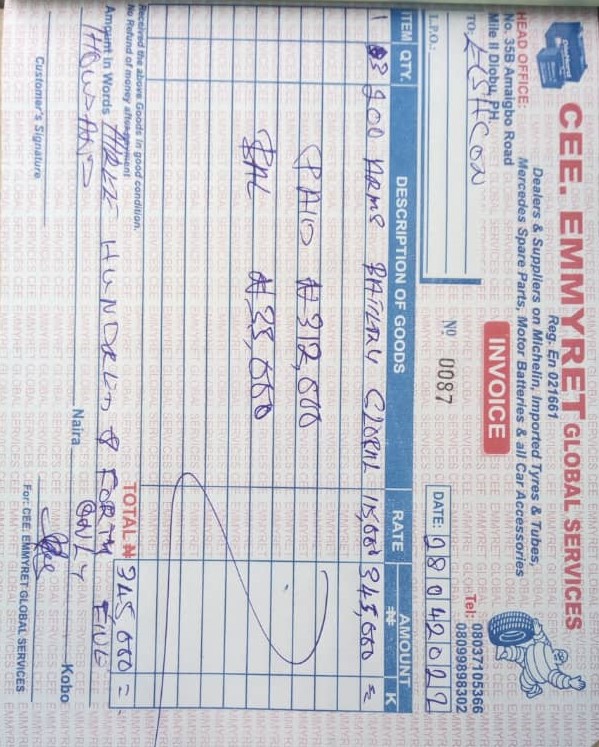 CEE. EMMYRET GLOBAL SERVICES
Reg. En 021661
Dealers & Suppliers on Michelin, Imported Tyres & Tubes,
Mercedes Spare Parts, Motor Batteries & all Car Accessories
HEAD OFFICE:
No. 35B Amaigbo Road
Mile II Diobu, PH.
INVOICE
Tel: 08037105366
08099898302
TO:
L.P.O.:
Nº 0087
DATE: 28 04 2022
ITEM QTY. DESCRIPTION OF GOODS RATE AMOUNT
₦ K
1 3 200 ARMS BATTERY GLOBAL 115,000 345,000 =
PAID ₦ 312,000
BAL ₦ 33,000
Received the above Goods in good condition.
No Refund of money after payment
TOTAL ₦ 345,000 =
Amount in Words THREE HUNDRED & FORTY FIVE
THOUSAND Naira ONLY Kobo
Customer's Signature
For: CEE. EMMYRET GLOBAL SERVICES